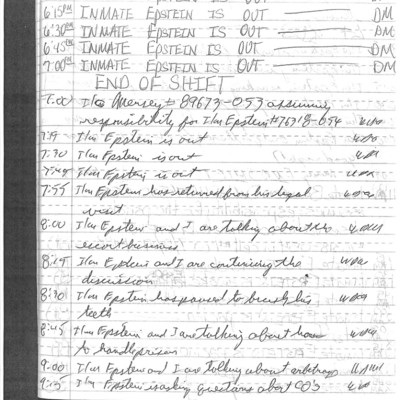 6:15PM INMATE EPSTEIN IS OUT DM
6:30PM INMATE EPSTEIN IS OUT DM
6:45PM INMATE EPSTEIN IS OUT DM
7:00PM INMATE EPSTEIN IS OUT DM
END OF SHIFT
7:00 I/m # 89673-053 assuming
responsibility for I/m Epstein # 76318-054
I/m Epstein is out
7:30 I/m Epstein is out
7:45 I/m Epstein is out
7:55 I/m Epstein has returned from his legal
visit
8:00 I/m Epstein and I are talking about the
escort business
8:15 I/m Epstein and I are continuing the
discussion
8:30 I/m Epstein has paused to brush his
teeth
8:45 I/m Epstein and I are talking about how
to handle prison
9:00 I/m Epstein and I are talking about arbitrage
9:15 I/m Epstein is asking questions about CO's